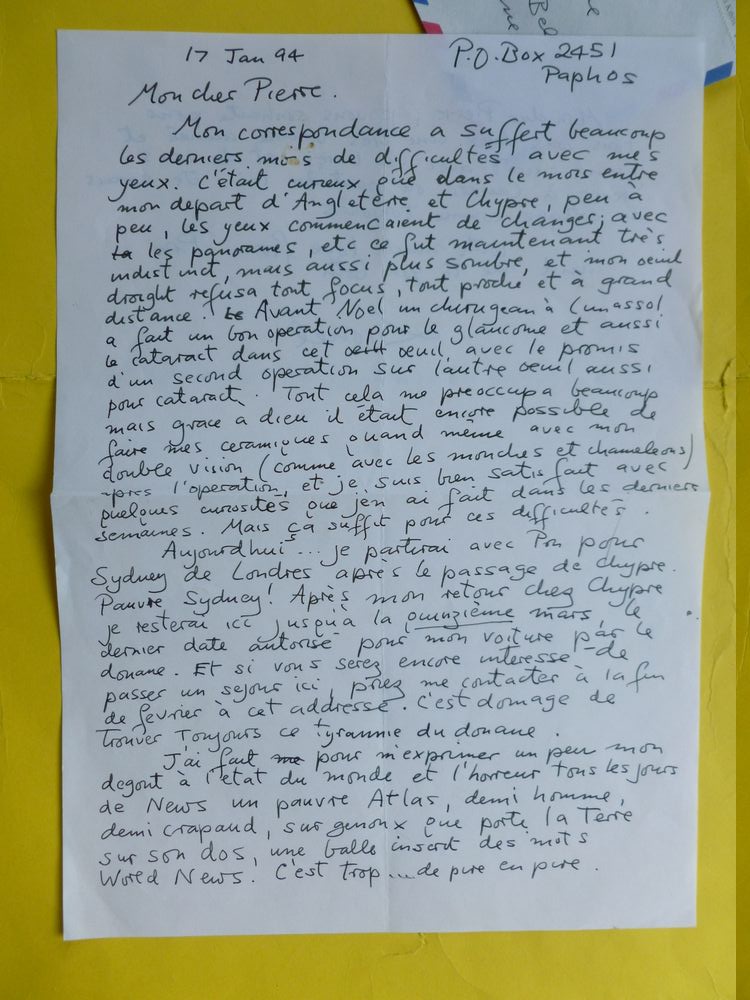 17 Jan 94
P.O. Box 2451
Paphos
Mon cher Pierre.
Mon correspondance a suffert beaucoup
les derniers mois de difficultés avec mes
yeux. C'était curieux que dans le mois entre
mon depart d'Angleterre et Chypre, peu à
peu, les yeux commencaient de changes; avec
les panorames, etc ce fut maintenant très
indistinct, mais aussi plus sombre, et mon oeuil
droight refusa tout focus, tout proche et à grand
distance. Avant Noel un chirugean à Limassol
a fait un bon operation pour le glaucome et aussi
le cataract dans cet oeuil, avec le promis
d'un second operation sur l'autre oeuil aussi
pour cataract. Tout cela me preoccupa beaucoup
mais grace a dieu il était encore possible de
faire mes ceramiques quand même avec mon
double vision (comme avec les monches et chameleons)
après l'operation, et je suis bien satisfait avec
quelques curiosités que j'en ai fait dans les derniers
semaines. Mais ça suffit pour ces difficultés.
Aujourdhui... je partirai avec Pon pour
Sydney de Londres après le passage de Chypre.
Pauvre Sydney! Après mon retour chez Chypre
je resterai ici jusqu'à la quinzième mars, le
dernier date autorisé pour mon voiture par le
douane. Et si vous serez encore interessé de
passer un sejour ici, priez me contacter à la fin
de fevrier à cet addresse. C'est domage de
trouver toujours ce tyrannie du douane.
J'ai fait me pour m'exprimer un peu mon
degout à l'etat du monde et l'horreur tous les jours
de News un pauvre Atlas, demi homme,
demi crapaud, sur genoux que porte la Terre
sur son dos, une balle insert des mots
World News. C'est trop... de pire en pire.